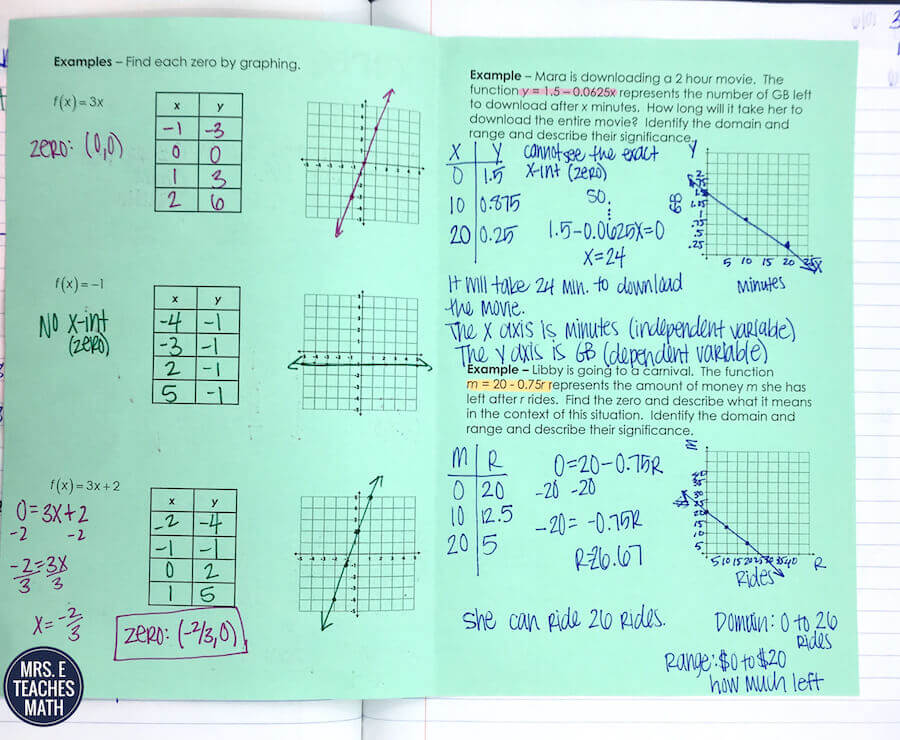 Examples – Find each zero by graphing.
f(x) = 3x
zero: (0,0)
x y
-1 -3
0 0
1 3
2 6
f(x) = -1
No x-int
(zero)
x y
-4 -1
-3 -1
2 -1
5 -1
f(x) = 3x + 2
0 = 3x + 2
-2 -2
-2 = 3x
3 3
x = -2/3
x y
-2 -4
-1 -1
0 2
1 5
zero: (-2/3, 0)
MRS. E
TEACHES
MATH
Example – Mara is downloading a 2 hour movie. The
function y = 1.5 – 0.0625x represents the number of GB left
to download after x minutes. How long will it take her to
download the entire movie? Identify the domain and
range and describe their significance.
X Y
0 1.5
10 0.875
20 0.25
cannot see the exact
x-int (zero)
so
1.5 - 0.0625x = 0
x = 24
Y
GB
5 10 15 20 25 X
Minutes
It will take 24 min. to download
the movie.
The x axis is minutes (independent variable)
The y axis is GB (dependent variable)
Example – Libby is going to a carnival. The function
m = 20 - 0.75r represents the amount of money m she has
left after r rides. Find the zero and describe what it means
in the context of this situation. Identify the domain and
range and describe their significance.
M R
0 20
10 12.5
20 5
0 = 20 - 0.75R
-20 -20
-20 = -0.75R
R=26.67
5 10 15 20 25 30 35 40 R
Rides
She can ride 26 rides.
Domain: 0 to 26
rides
Range: $0 to $20
how much left